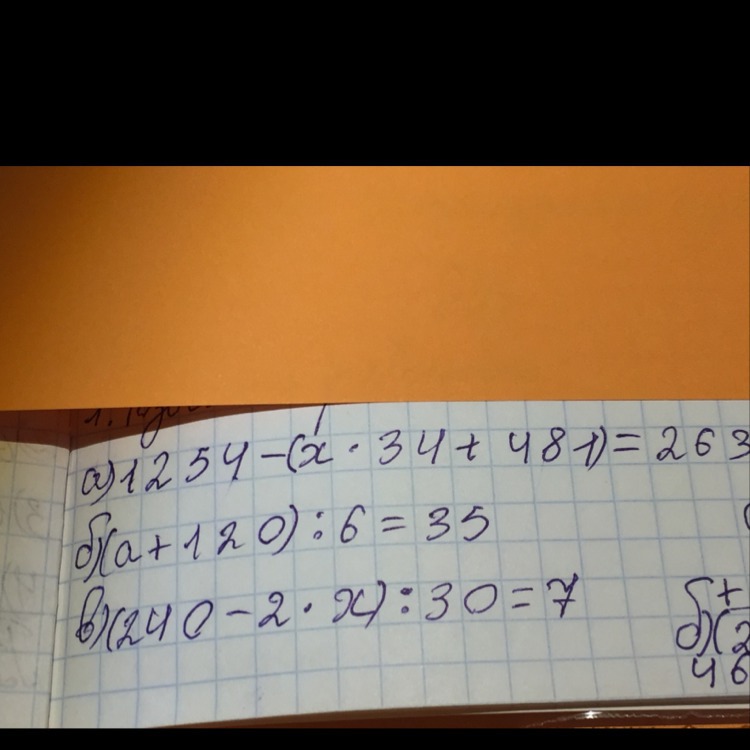 а) 1254 - (x · 34 + 481) = 263
б) (a + 120) : 6 = 35
в) (240 - 2 · x) : 30 = 7
б) (2
46